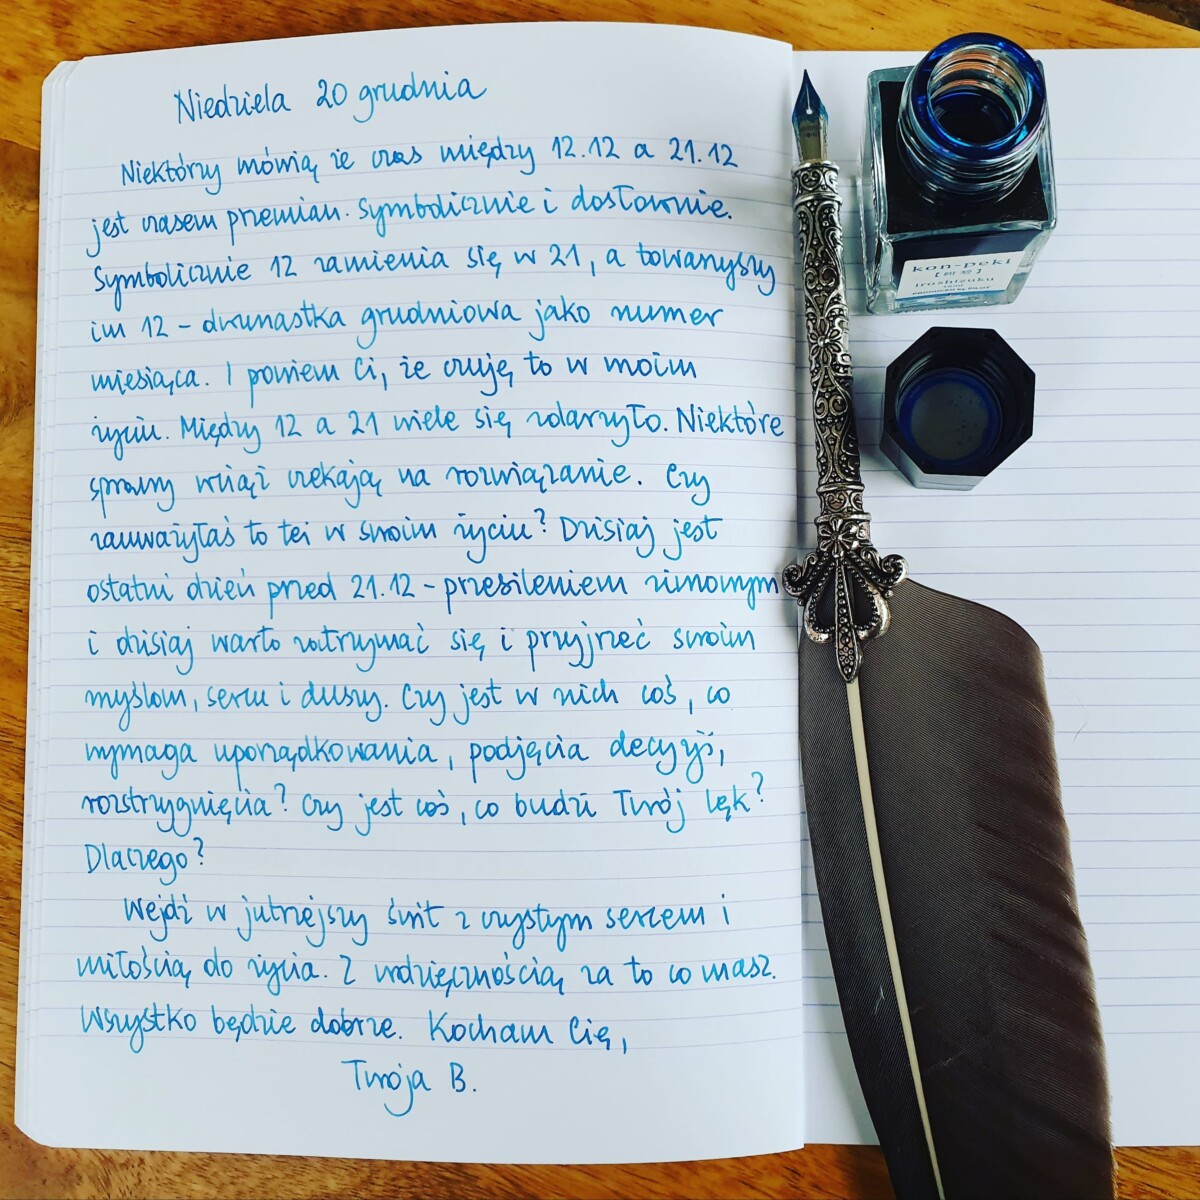 Niedziela 20 grudnia
Niektórzy mówią że czas między 12.12 a 21.12
jest czasem przemian. Symbolicznie i dosłownie.
Symbolicznie 12 zamienia się w 21, a towarzyszy
im 12 - dwunastka grudniowa jako numer
miesiąca. I powiem Ci, że czuję to w moim
życiu. Między 12 a 21 wiele się zdarzyło. Niektóre
sprawy wciąż czekają na rozwiązanie. Czy
zauważyłaś to też w swoim życiu? Dzisiaj jest
ostatni dzień przed 21.12 - przesileniem zimowym
i dzisiaj warto zatrzymać się i przyjrzeć swoim
myślom, sercu i duszy. Czy jest w nich coś, co
wymaga uporządkowania, podjęcia decyzji,
rozstrzygnięcia? Czy jest coś, co budzi Twój lęk?
Dlaczego?
Wejdź w jutrzejszy świt z czystym sercem i
miłością do życia. Z wdzięcznością za to co masz.
Wszystko będzie dobrze. Kocham Cię,
Twoja B.
kon-peki
iroshizuku